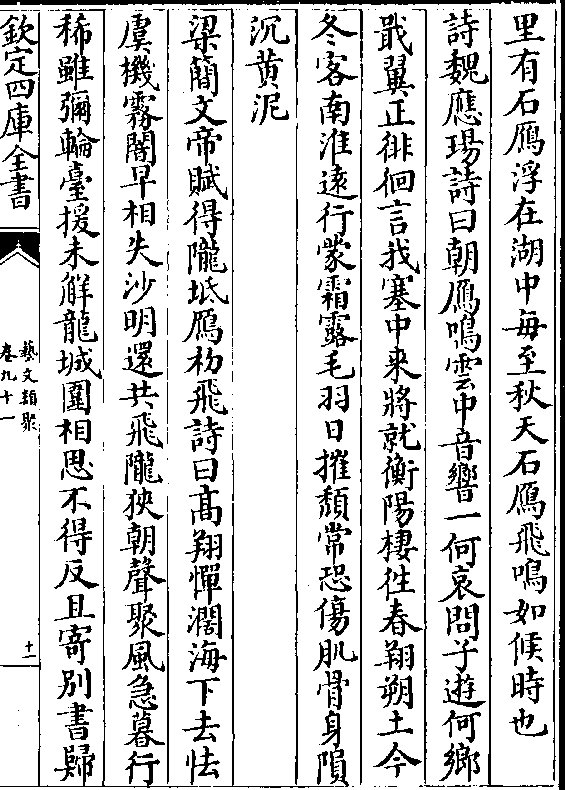 里有石鴈浮在湖中每至秋天石鴈飛鳴如候時也
詩魏應瑒詩曰朝鴈鳴雲中音響一何哀問子遊何鄉
戢翼正徘徊言我塞中來將就衡陽棲徃春翔朔土今
冬客南淮逺行蒙霜露毛羽日摧頽常恐傷肌骨身隕
沉黄泥
梁簡文帝賦得隴坻鴈初飛詩曰髙翔憚濶海下去怯
虞機霧闇早相失沙明還共飛隴狹朝聲聚風急暮行
稀雖彌輪臺援未解龍城圍相思不得反且寄别書歸
欽定四庫全書
藝文類聚
卷九十一
十一